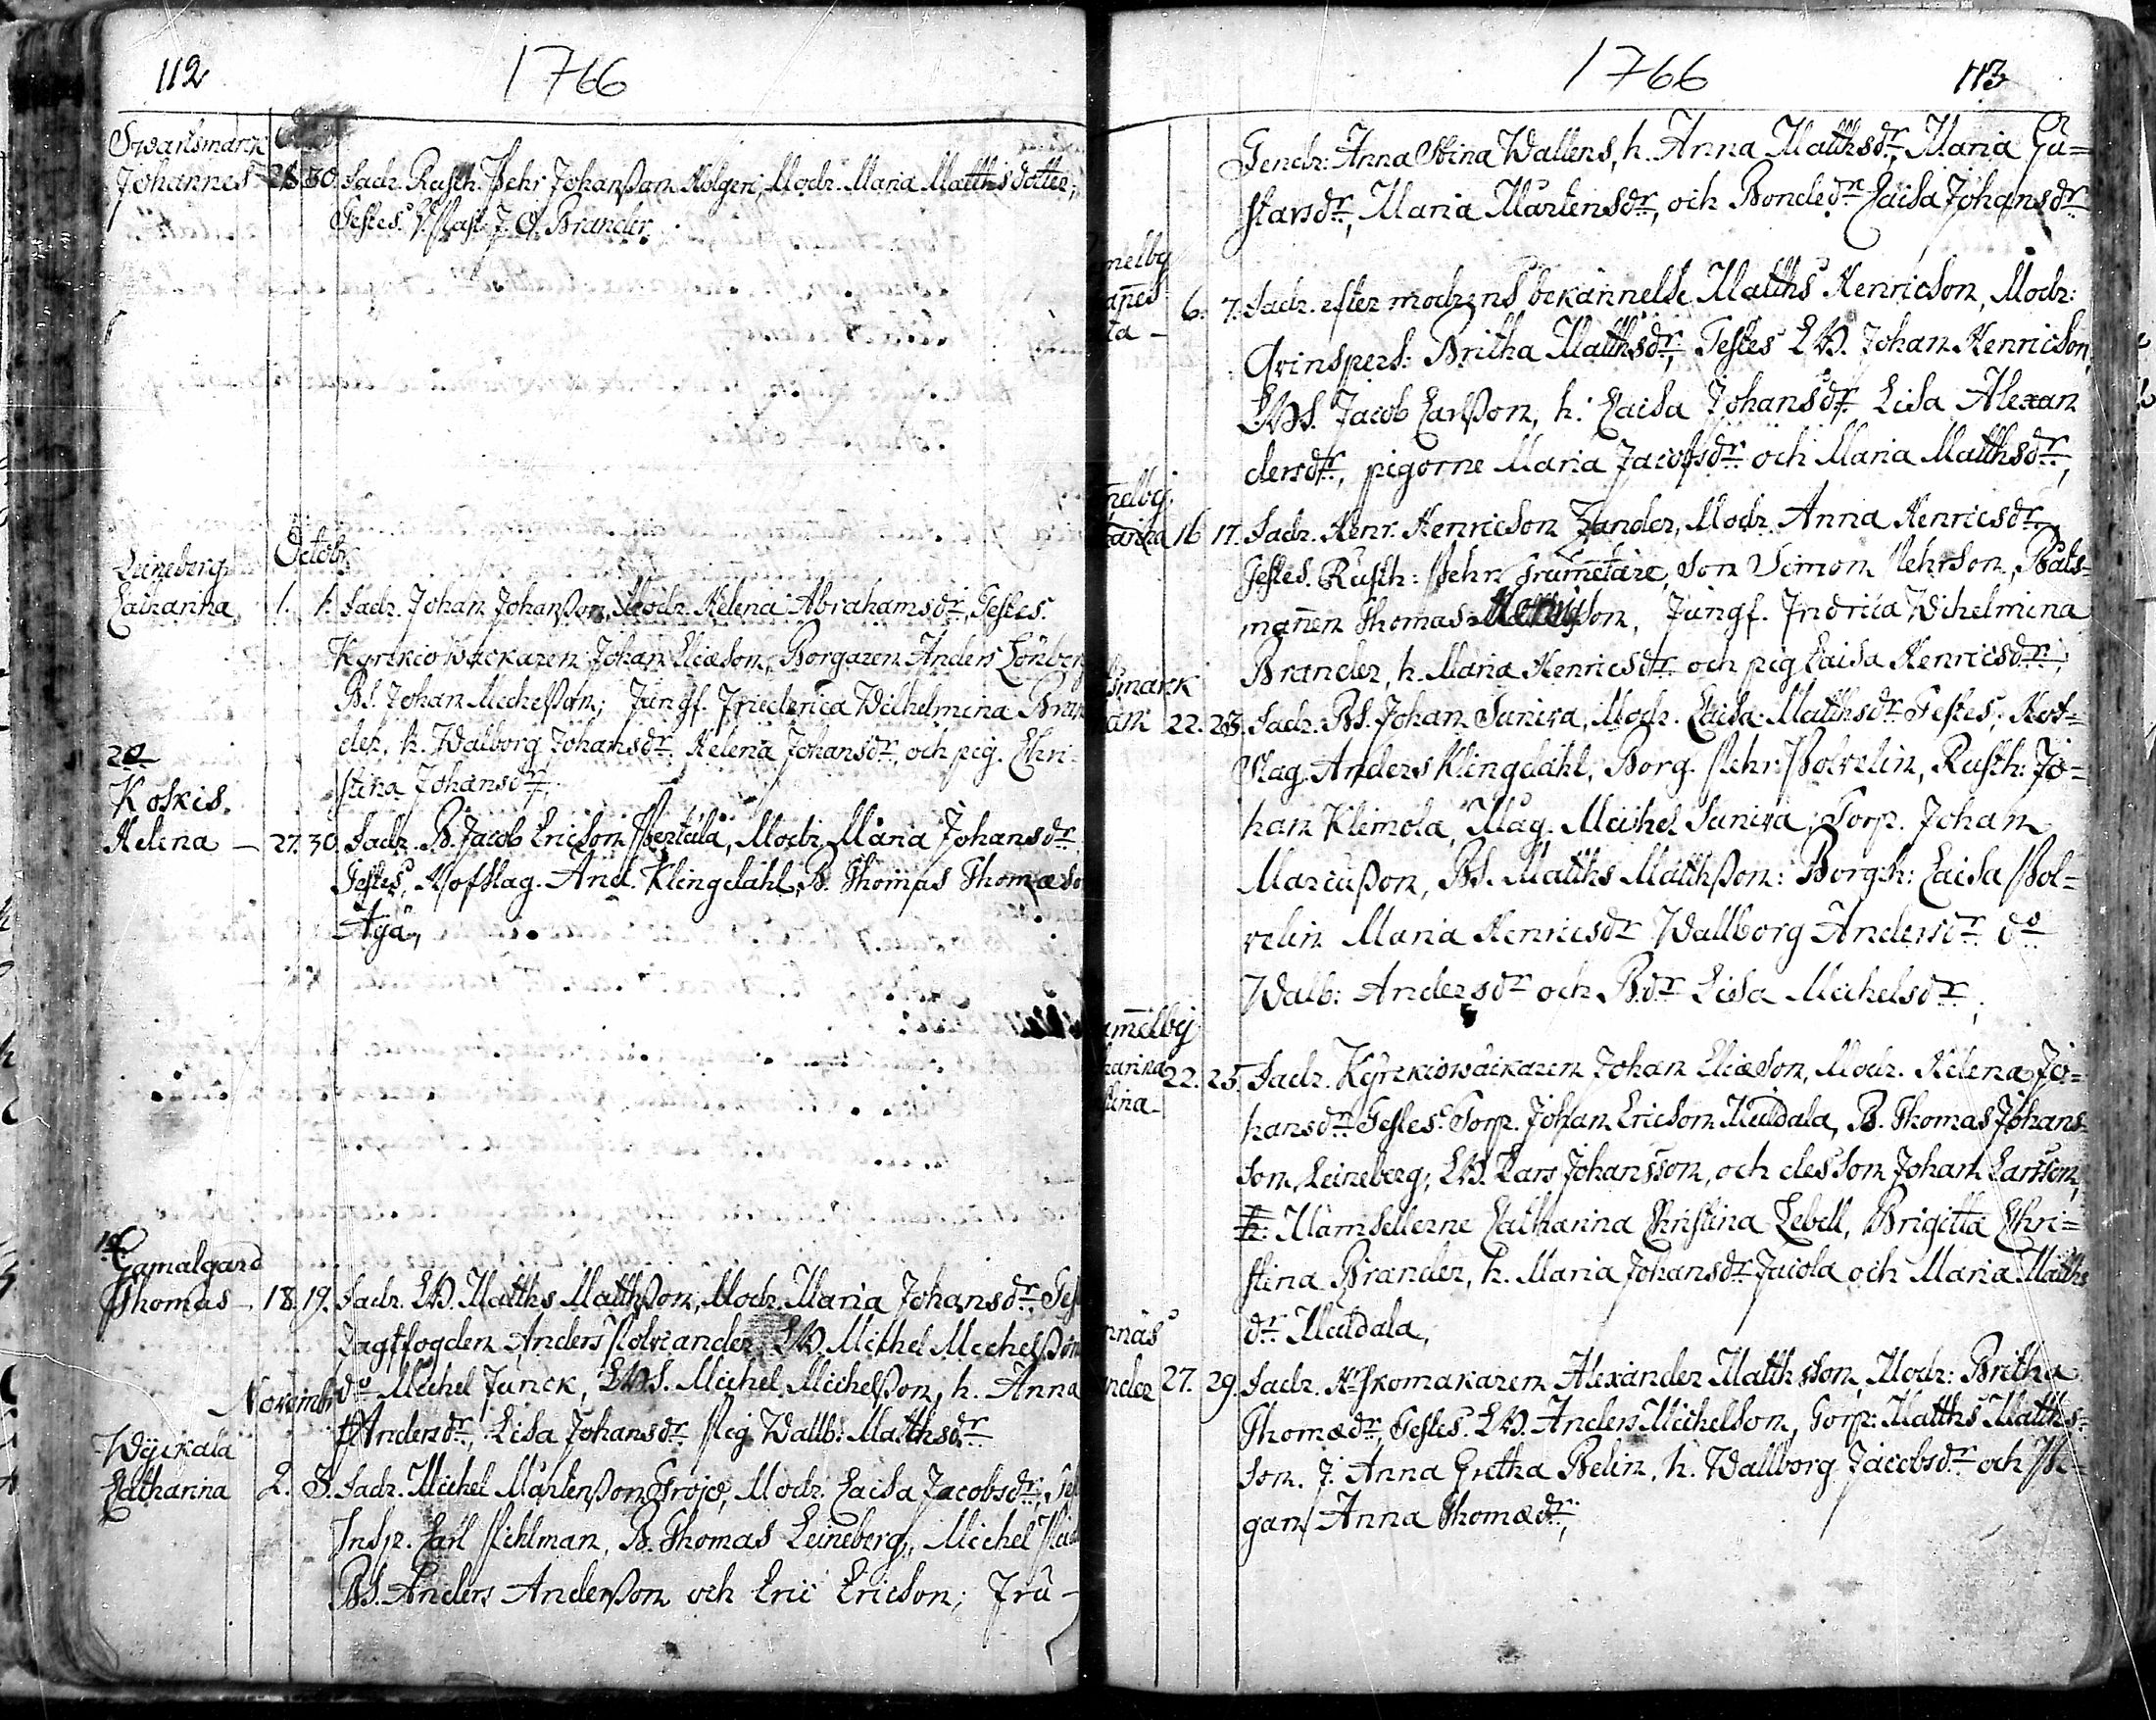 112
1766
Swartsmark
Johannes 28. 30. Fadr. Rusth. Pehr Johanßon Holgeri, Modr. Maria Matthsdotter;
Testes. V. Past. J. O. Brander.
Octobr.
Leineberg
Catharina 1. 1. Fadr. Johan Johanßon, Modr. Helena Abrahamsdr, Testes.
Kyrckiowäckaren Johan Eliæson, Borgaren Anders Lönber
BS. Johan Michelßon; Jungf. Friederica Wilhelmina Bran
der, h. Walborg Johansdr, Helena Johansdr, och pig. Chri-
stina Johansdr.
Koskis.
Helena - 27. 30. Fadr. B. Jacob Ericson Pertula, Modr. Maria Johansdr
Testes, Hofslag. And. Klingdahl, B. Thomas Thomæso
Äyä,
Gamalgard
Thomas - 18. 19. Fadr. LB. Matths Matthßon, Modr. Maria Johansdr, Tes
Jagtfogden Anders Polviander, LB. Michel Michelßon
do Michel Junck, LBS. Michel Michelßon, h. Anna
Andersdr, Lisa Johansdr Pig Wallb: Matthsdr
Novembr
Wijckala
Catharina 2. 3. Fadr. Michel Mårtenßon Trojo, Modr. Caisa Jacobsdr, Tes
Insp. Carl Pihlman, B. Thomas Leineberg, Michel
BS. Anders Anderßon och Eric Ericson; Fru -
1766
113
Gendr: Anna Stina Wallens, h. Anna Matthsdr, Maria Gu=
stavsdr, Maria Mårtensdr, och Bondedr Caisa Johansdr
melby
anes
ta - 6. 7. Fadr. efter modrens bekännelse Matths Henricson, Modr:
Qvinspers: Britha Matthsdr, Testes LB. Johan Henricson,
LBS. Jacob Carlßon, h. Caisa Johansdr, Lisa Alexan
dersdr, pigorne Maria Jacobsdr och Maria Matthsdr,
melby.
arina 16 17. Fadr. Henr. Henricson Zander, Modr. Anna Henricsdr,
Testes. Rusth: Pehr Trumetare, Son Simon Pehrson, Båts-
mannen Thomas Henricson, Jungf. Fridrica Wilhelmina
Brander, h. Maria Henricsdr och pig Caisa Henricsdr;
smark
am 22. 23. Fadr. BS. Johan Suniva, Modr. Caisa Matthsdr Testes; Hof=
slag. Anders Klingdahl, Borg. Pehr Polvelin, Rusth: Jo=
han Klemola, Mag. Michel Suniva, Torp. Johan
Marcußon, BS. Matths Matthßon: Borgh: Caisa Pol=
velin Maria Henricsdr Wallborg Andersdr do
Walb: Andersdr och B.dr Lisa Michelsdr,
amelby
harina
stina - 22. 25. Fadr. Kyrckiowäckaren Johan Eliæson, Modr. Helena Jo=
hansdr Testes. Torp. Johan Ericson Muldala, B. Thomas Johans-
son, Leineberg; LB. Lars Johansson, och des son Johan Larsson,
h: Mamsellerne Catharina Christina Lebell, Brigitta Chri=
stina Brander, h. Maria Johansdr Jacola och Maria Matths
dr Muldala,
nnäs
nder 27. 29. Fadr. Skomakaren Alexander Matthsson, Modr: Britha
Thomædr, Testes. LB. Anders Michelson, Torp: Matths Matths-
son. J. Anna Gretha Belin, h. Wallborg Jacobsdr och Pi-
gan Anna Thomædr;